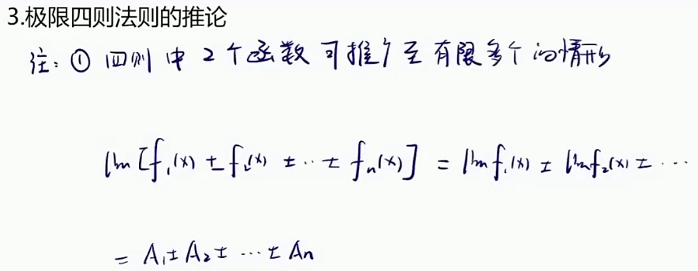 3.极限四则法则的推论
注：① 四则中2个函数可推广至有限多个的情形
lim [f₁(x) ± f₂(x) ± ‥ ± fₙ(x)] = lim f₁(x) ± lim f₂(x) ± ⋯
= A₁ ± A₂ ± ⋯ ± Aₙ